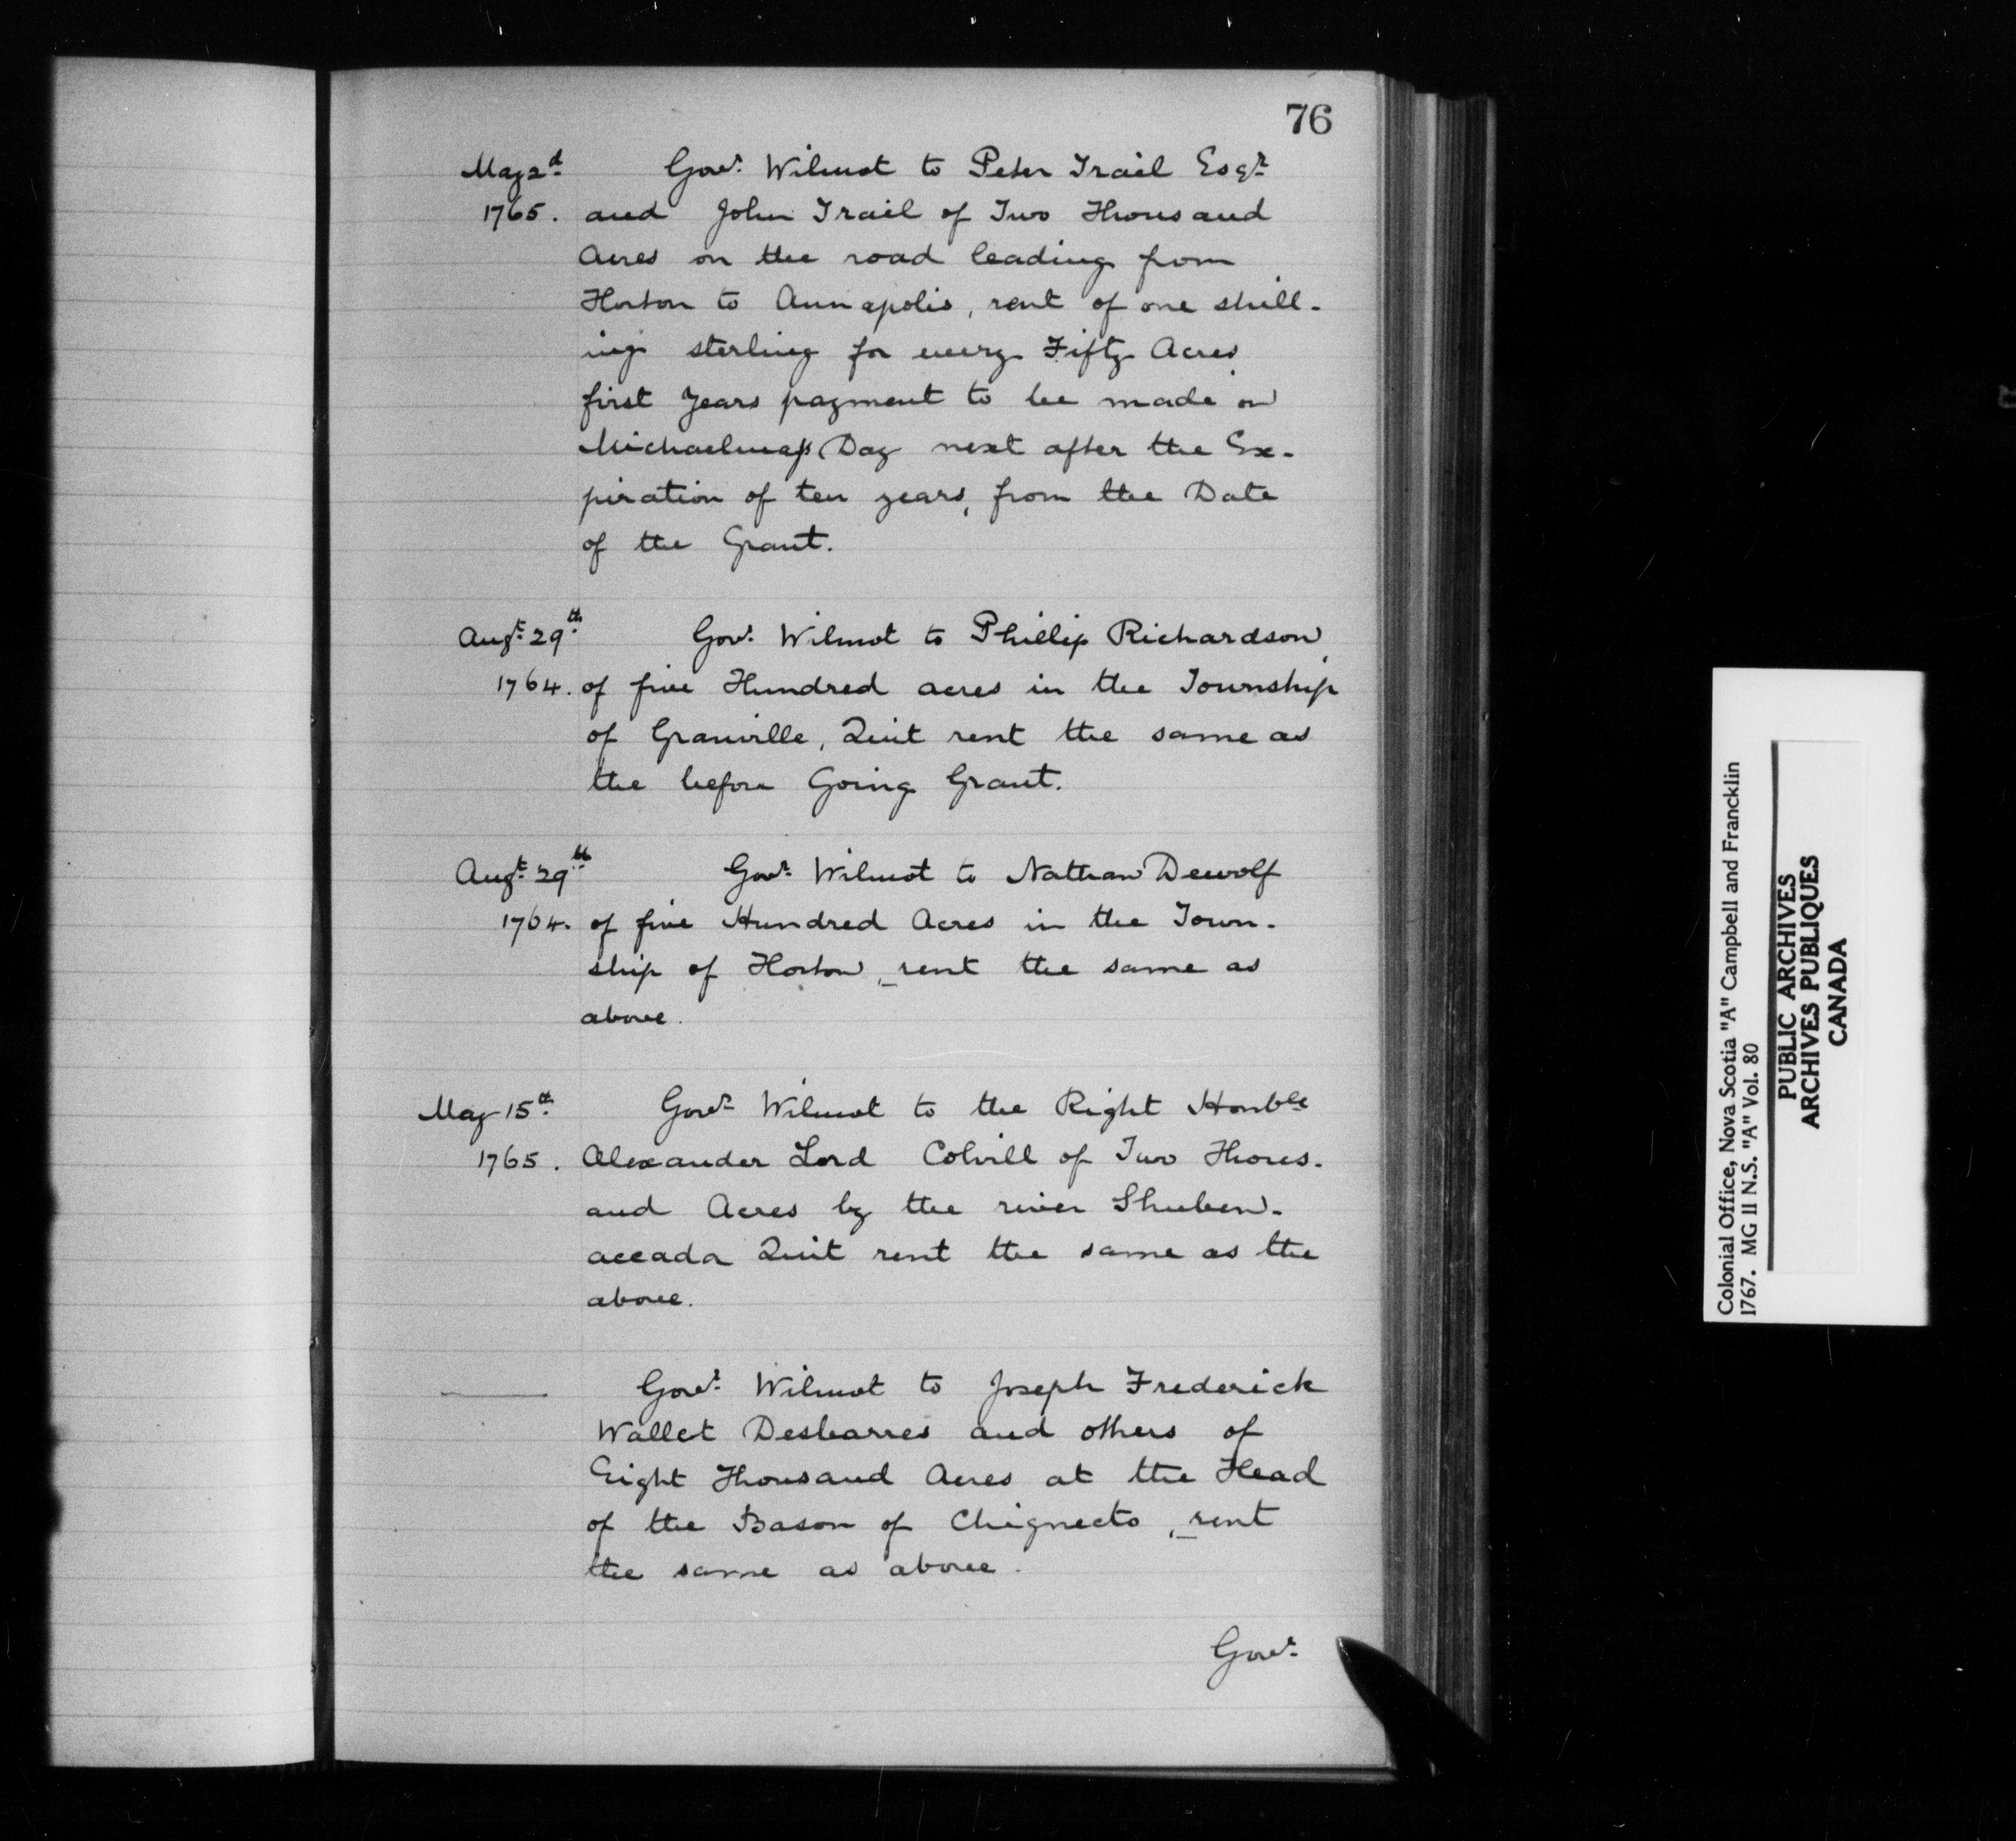 76
May 2d. Govr. Wilmot to Peter Trail Esqr.
1765. and John Trail of Two Thousand
Acres on the road leading from
Horton to Annapolis, rent of one shill-
ing sterling for every Fifty Acres,
first years payment to be made on
Michaelmass Day next after the Ex-
piration of ten years, from the Date
of the Grant.
Augt. 29th. Govr. Wilmot to Phillip Richardson,
1764. of five Hundred acres in the Township
of Granville, Quit rent the same as
the before Going Grant.
Augt. 29th Govr. Wilmot to Nathan Dewolf
1764. of five Hundred Acres in the Town-
ship of Horton, rent the same as
above.
May 15th. Govr. Wilmot to the Right Honble
1765. Alexander Lord Colvill of Two Thous-
and Acres by the river Shuben-
accada Quit rent the same as the
above.
Govr. Wilmot to Joseph Frederick
Wallet Desbarres and others of
Eight Thousand Acres at the Head
of the Bason of Chignecto, rent
the same as above.
Govr.
Colonial Office, Nova Scotia "A" Campbell and Francklin
1767. MG II N.S. "A" Vol. 80
PUBLIC ARCHIVES
ARCHIVES PUBLIQUES
CANADA